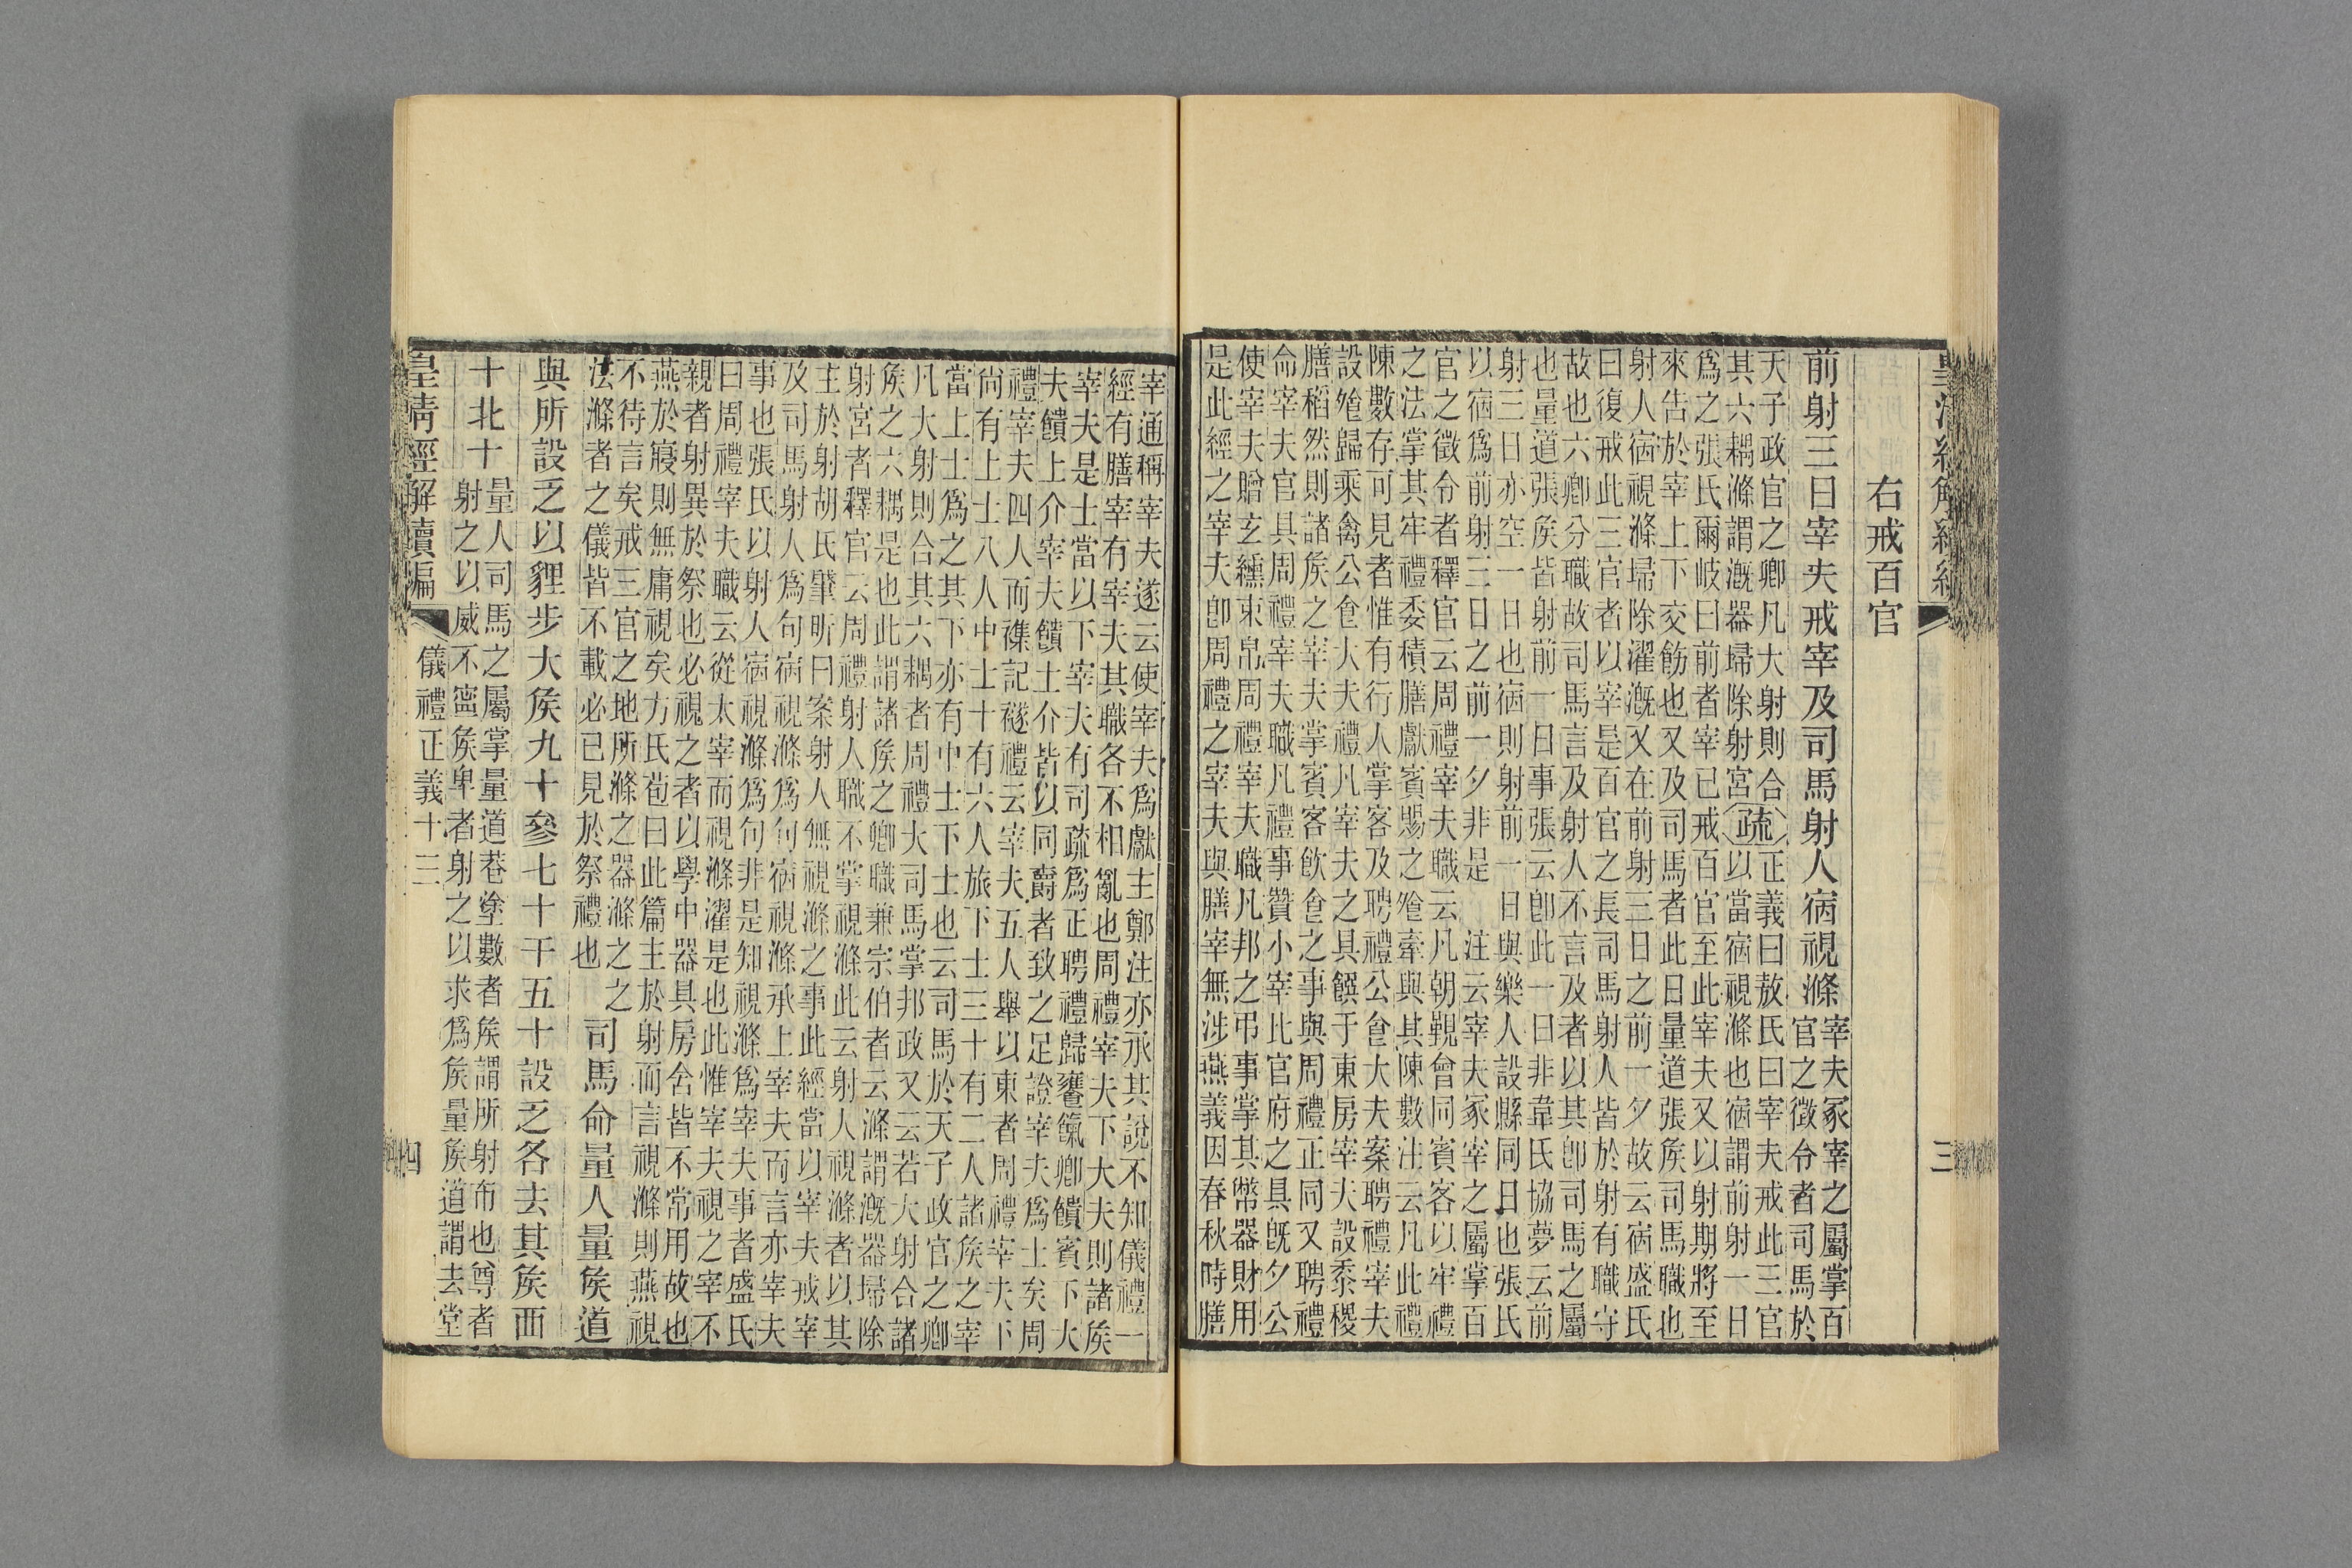 右戒百官
前射三日宰夫戒宰及司馬射人宿視滌
宰夫冢宰之屬掌百
官之徵令者司馬於
天子政官之卿凡大射則合
其六耦滌謂漑器埽除射宮
疏
正義曰敖氏曰宰夫戒此三官
以當宿視滌也宿謂前射一日
爲之張氏爾岐曰前者宰已戒百官至此宰夫又以射期將至
來告於宰上下交飭也又及司馬者此日量道張矦司馬職也
射人宿視滌埽除濯漑又在前射三日之前一夕故云宿盛氏
曰復戒此三官者以宰是百官之長司馬射人皆於射有職守
故也六卿分職故司馬言及射人不言及者以其卽司馬之屬
也量道張矦皆射前一日事張云卽此一日非韋氏協夢云前
射三日亦空一日也宿則射前一日與樂人設縣同日也張氏
以宿爲前射三日之前一夕非是 注云宰夫冢宰之屬掌百
官之徵令者釋官云周禮宰夫職云凡朝覲會同賓客以牢禮
之法掌其牢禮委積膳獻賓賜之飱牽與其陳數注云凡此禮
陳數存可見者惟有行人掌客及聘禮公食大夫案聘禮宰夫
設飱歸乘禽公食大夫禮凡宰夫之具饌于東房宰夫設黍稷
膳稻然則諸矦之宰夫掌賓客飮食之事與周禮正同又聘禮
命宰夫官具周禮宰夫職凡禮事贊小宰比官府之具旣夕公
使宰夫贈玄纁束帛周禮宰夫職凡邦之弔事掌其幣器財用
是此經之宰夫卽周禮之宰夫與膳宰無涉燕義因春秋時膳
宰通稱宰夫遂云使宰夫爲獻主鄭注亦承其說不知儀禮一
經有膳宰有宰夫其職各不相亂也周禮宰夫下大夫則諸矦
宰夫是士當以下宰夫有司疏爲正聘禮歸饔餼卿饋賓下大
夫饋上介宰夫饋士介皆以同爵者致之足證宰夫爲士矣周
禮宰夫四人而襍記襚禮云宰夫五人舉以東者周禮宰夫下
尙有上士八人中士十有六人旅下士三十有二人諸矦之宰
當上士爲之其下亦有中士下士也云司馬於天子政官之卿
凡大射則合其六耦者周禮大司馬掌邦政又云若大射合諸
矦之六耦是也此謂諸矦之卿職兼宗伯者云滌謂漑器埽除
射宮者釋官云周禮射人職不掌視滌此云射人視滌者以其
主於射胡氏肇昕曰案射人無視滌之事此經當以宰夫戒宰
及司馬射人爲句宿視滌爲句宿視滌承上宰夫而言亦宰夫
事也張氏以射人宿視滌爲句非是知視滌爲宰夫事者盛氏
曰周禮宰夫職云從太宰而視滌濯是也此惟宰夫視之宰不
親者射異於祭也必視之者以學中器具房舍皆不常用故也
燕於寢則無庸視矣方氏苞曰此篇主於射而言視滌則燕視
不待言矣戒三官之地所滌之器滌之之
法滌者之儀皆不載必已見於祭禮也
司馬命量人量矦道
與所設乏以貍步大矦九十參七十干五十設乏各去其矦西
十北十
量人司馬之屬掌量道巷塗數者矦謂所射布也尊者
射之以威不寧矦卑者射之以求爲矦量矦道謂去堂
皇淸經解續編
儀禮正義十三
四
三